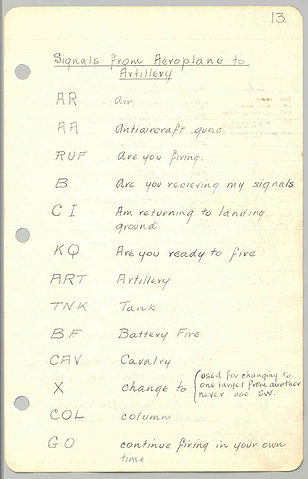 13.
Signals from Aeroplane to
Artillery
AR air
AA Antiaircraft guns.
RUF Are you firing.
B Are you recieving my signals
CI Am returning to landing
ground
KQ Are you ready to fire
ART Artillery
TNK Tank
BF Battery Fire
CAV Cavalry
X change to { used for changing to
one target from another
never use SW.
COL column
GO continue firing in your own
time